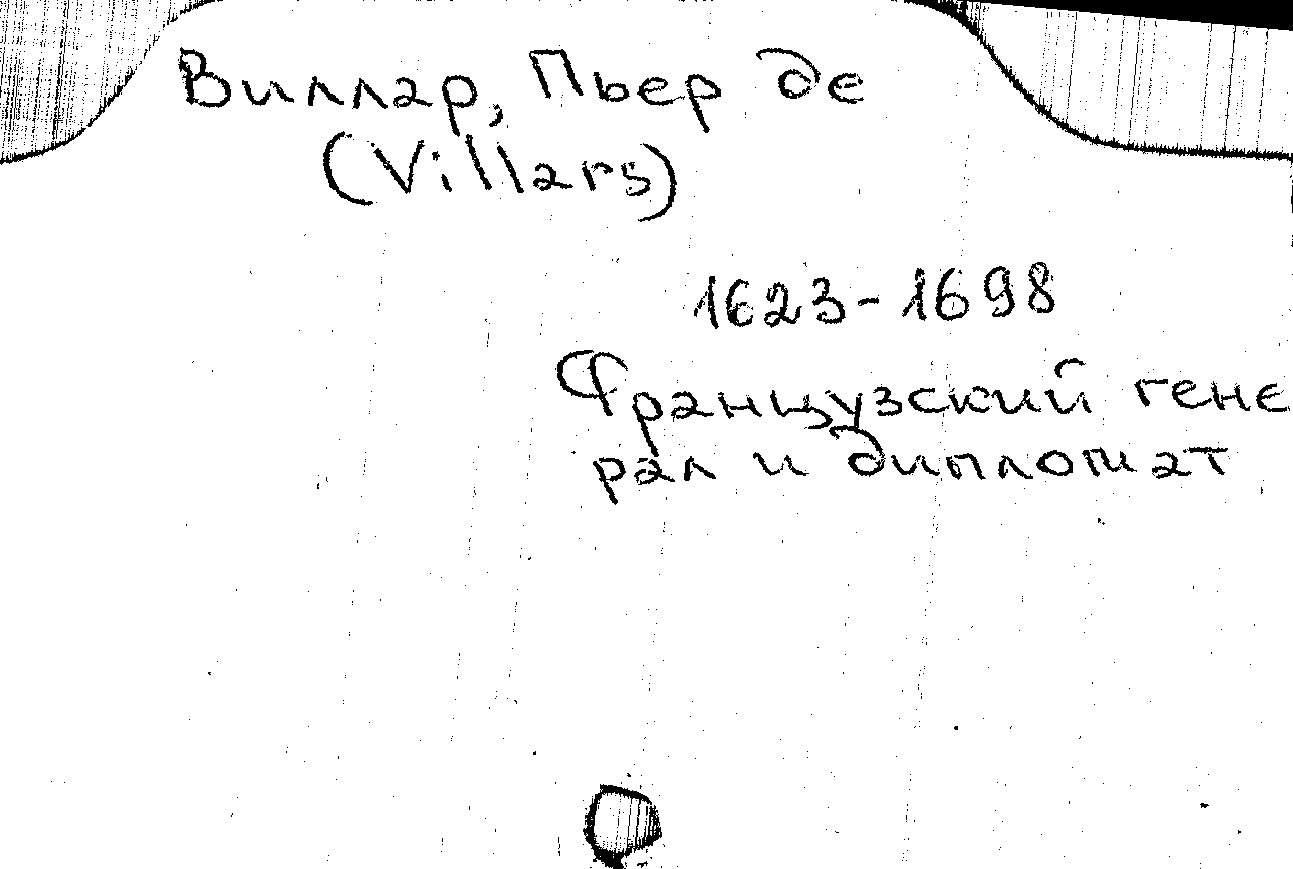 Виллар, Пьер де
(Villars)
1623-1698
Французский гене
рал и дипломат